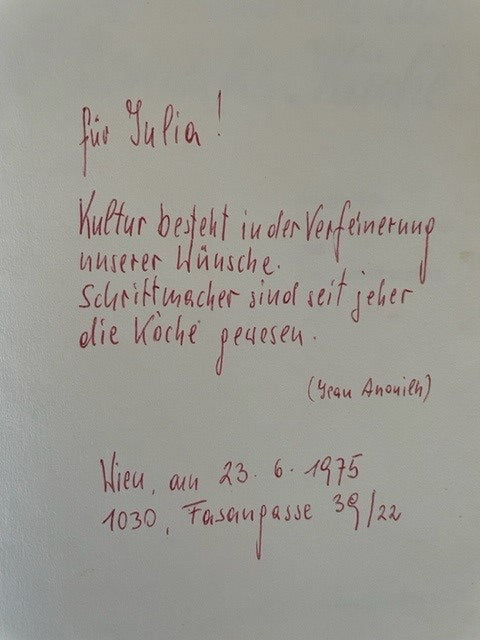 für Julia!
Kultur besteht in der Verfeinerung
unserer Wünsche.
Schrittmacher sind seit jeher
die Köche gewesen.
(Jean Anouilh)
Wien, am 23. 6. 1975
1030, Fasangasse 39/22